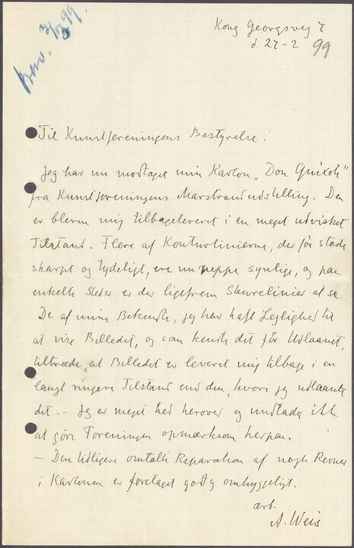 Besv. 3/3 99.
Kong Georgsvej 7
d 27-2 99
Til Kunstforeningens Bestyrelse.
Jeg har nu modtaget min Karton „Don Quixote“
fra Kunstforeningens Marstrandudstilling. Den
er bleven mig tilbageleveret i en meget udvisket
Tilstand. Flere af Konturlinierne, der før stode
skarpt og tydeligt, ere nu neppe synlige, og paa
enkelte Steder er der ligefrem Skurelinier at se.
De af mine Bekendte, jeg har haft Lejlighed til
at vise Billedet, og som kendte det før Udlaanet,
tiltræde, at Billedet er leveret mig tilbage i en
langt ringere Tilstand end den, hvori jeg udlaante
det. - Jeg er meget ked herover og undlader ikke
at gøre Foreningen opmærksom herpaa.
- Den tidligere omtalte Reparation af nogle Revner
i Kartonen er foretaget godt og omhyggeligt.
ærb.
A. Weis